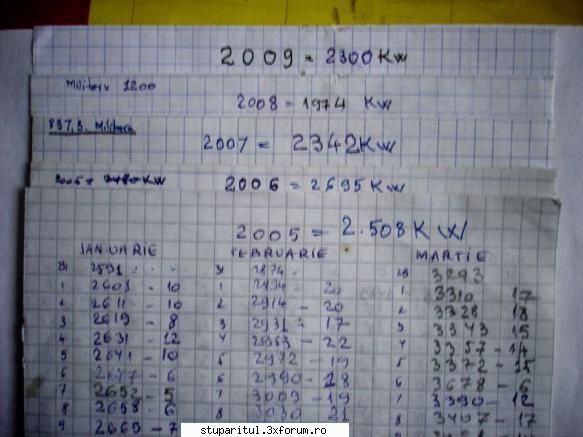 2009 = 2300 Kw
Militari 1200
2008 = 1974 Kw
2007 = 2342 Kw
2006 = 2695 Kw
2005 = 2.508 K W
IANUARIE FEBRUARIE MARTIE
31 2591 31 2874 28 3293
1 2601 - 10 1 2894 - 20 1 3310 17
2 2611 - 10 2 2914 - 20 2 3328 18
3 2619 - 8 3 2931 - 17 3 3343 15
4 2631 - 12 4 2953 - 22 4 3357 - 14
5 2641 - 10 5 2972 - 19 5 3372 - 15
6 2647 - 6 6 2990 - 18 6 3378 - 6
7 2652 - 5 7 3009 - 19 7 3390 - 12
8 2658 - 6 8 3030 21 8 3407 - 17
9 2665 - 7
stuparitul.3xforum.ro